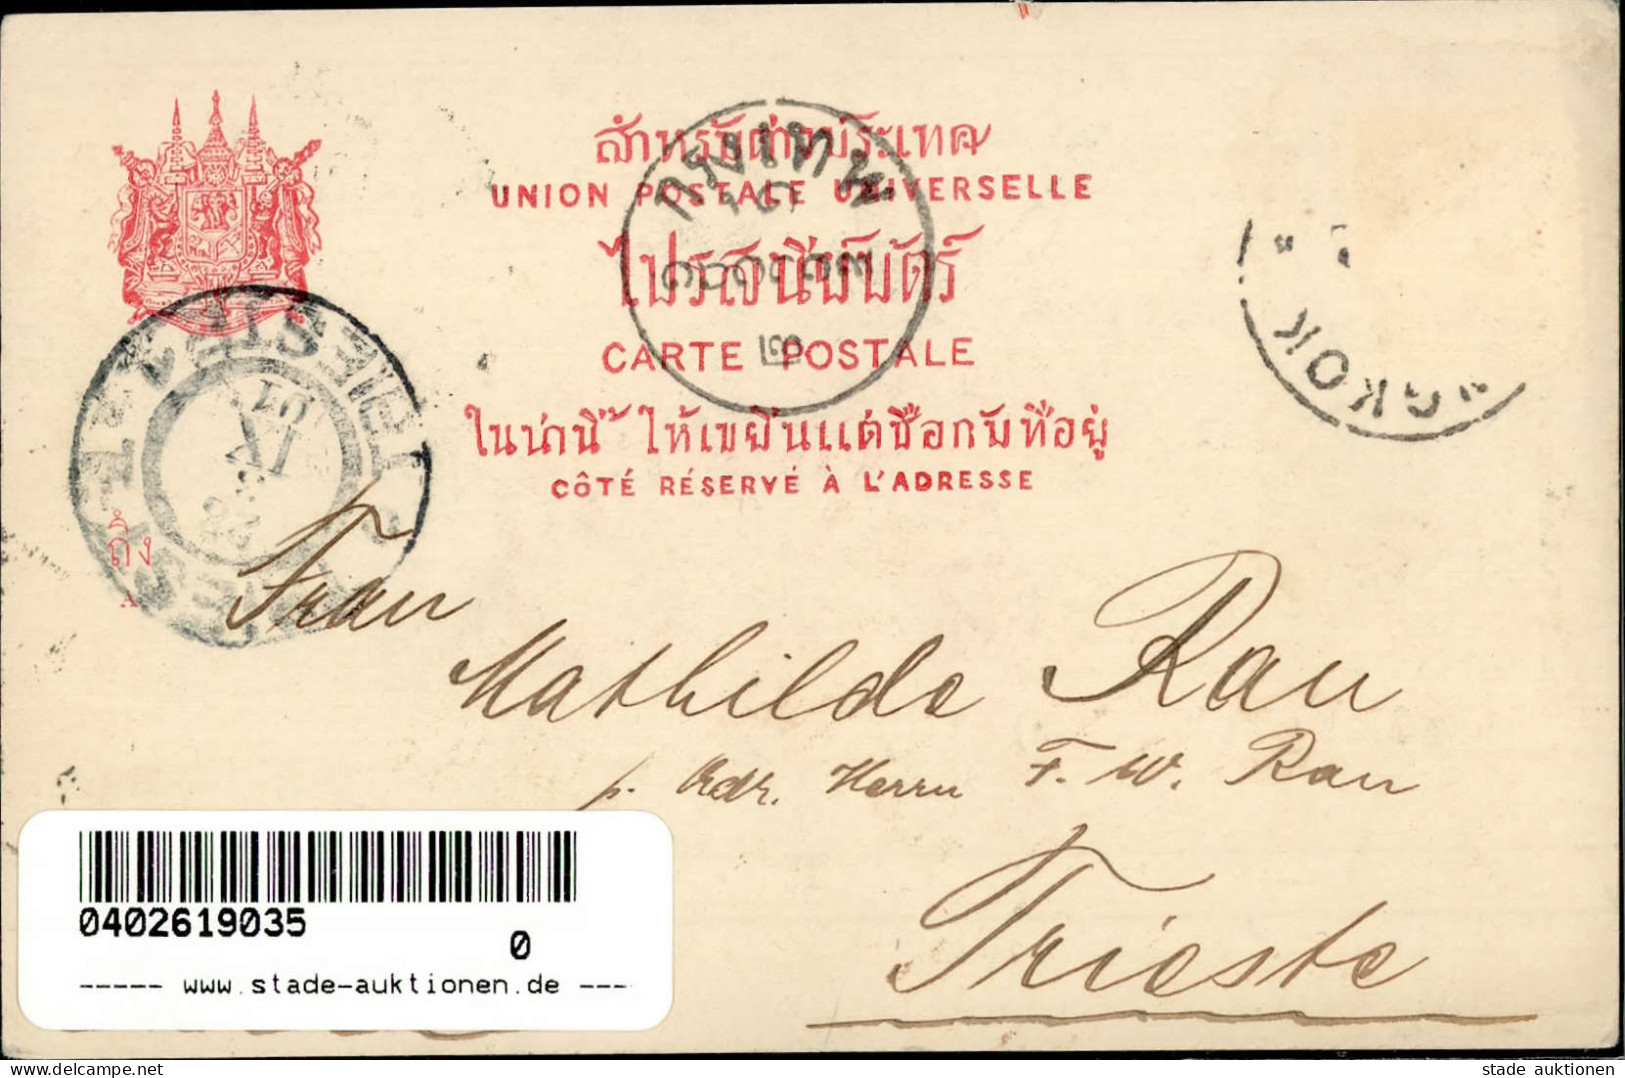 สำหรับต่างประเทศ
UNION POSTALE UNIVERSELLE
ไปรสนีย์บัตร์
CARTE POSTALE
ในน่านี้ ให้เขยีนแต่ชื่อกับที่อยู่
CÔTÉ RÉSERVÉ À L'ADRESSE
กรุงเทพ
TRIEST
ถึง
A
Frau
Mathilde Rau
p. Adr. Herrn F. W. Rau
Trieste
0402619035
0
----- www.stade-auktionen.de ---
stade auktionen